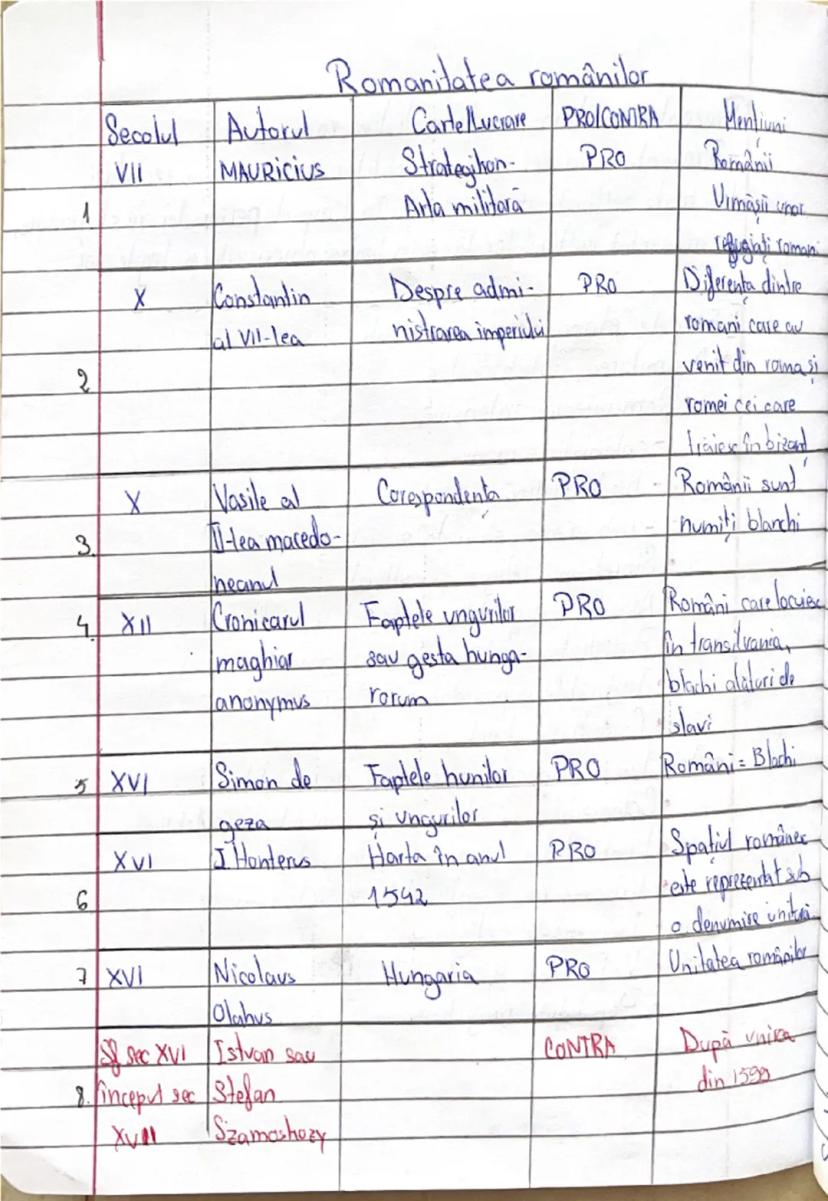 Romanitatea românilor
Secolul Autorul Carte/Lucrare PRO/CONTRA Mențiuni
VII MAURICIUS Strategikon- PRO Românii
1 Arta militară Urmașii unor
refugiați romani
X Constantin Despre admi- PRO Diferența dintre
al VII-lea nistrarea imperiului romani care au
2 venit din roma și
romei cei care
trăiesc în bizanț
X Vasile al Corespondenta PRO Românii sunt
3. II-lea macedo- numiți blanchi
neanul
4. XII Cronicarul Faptele ungurilor PRO Români care locuiesc
maghiar sau gesta hunga- în transilvania,
anonymus rorum blachi alături de
slavi
5 XVI Simon de Faptele hunilor PRO Români = Blachi
geza și ungurilor
XVI J. Honterus Harta în anul PRO Spațiul românesc
6 1542 este reprezentat sub
o denumire unitară
7 XVI Nicolaus Hungaria PRO Unitatea românilor
Olahus
Sf sec XVI Istvan sau CONTRA După unirea
8. început sec Stefan din 1599
XVII Szamoshozy